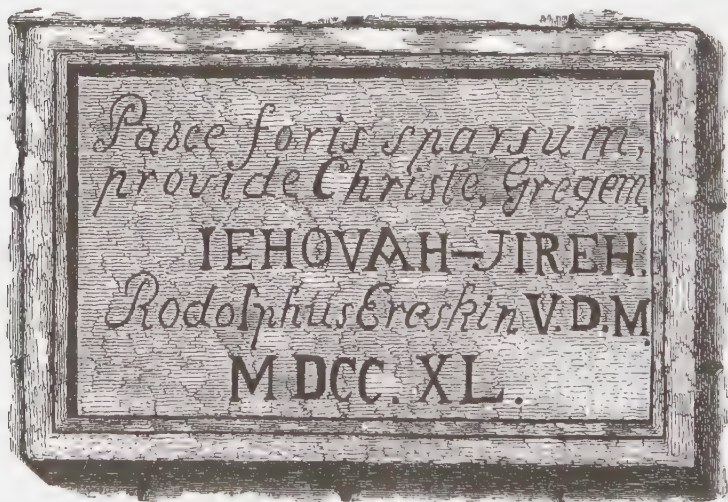 Pasce foris sparsum,
provide Christe, Gregem
IEHOVAH-JIREH.
Rodolphus Ereskin V.D.M
M DCC. XL.